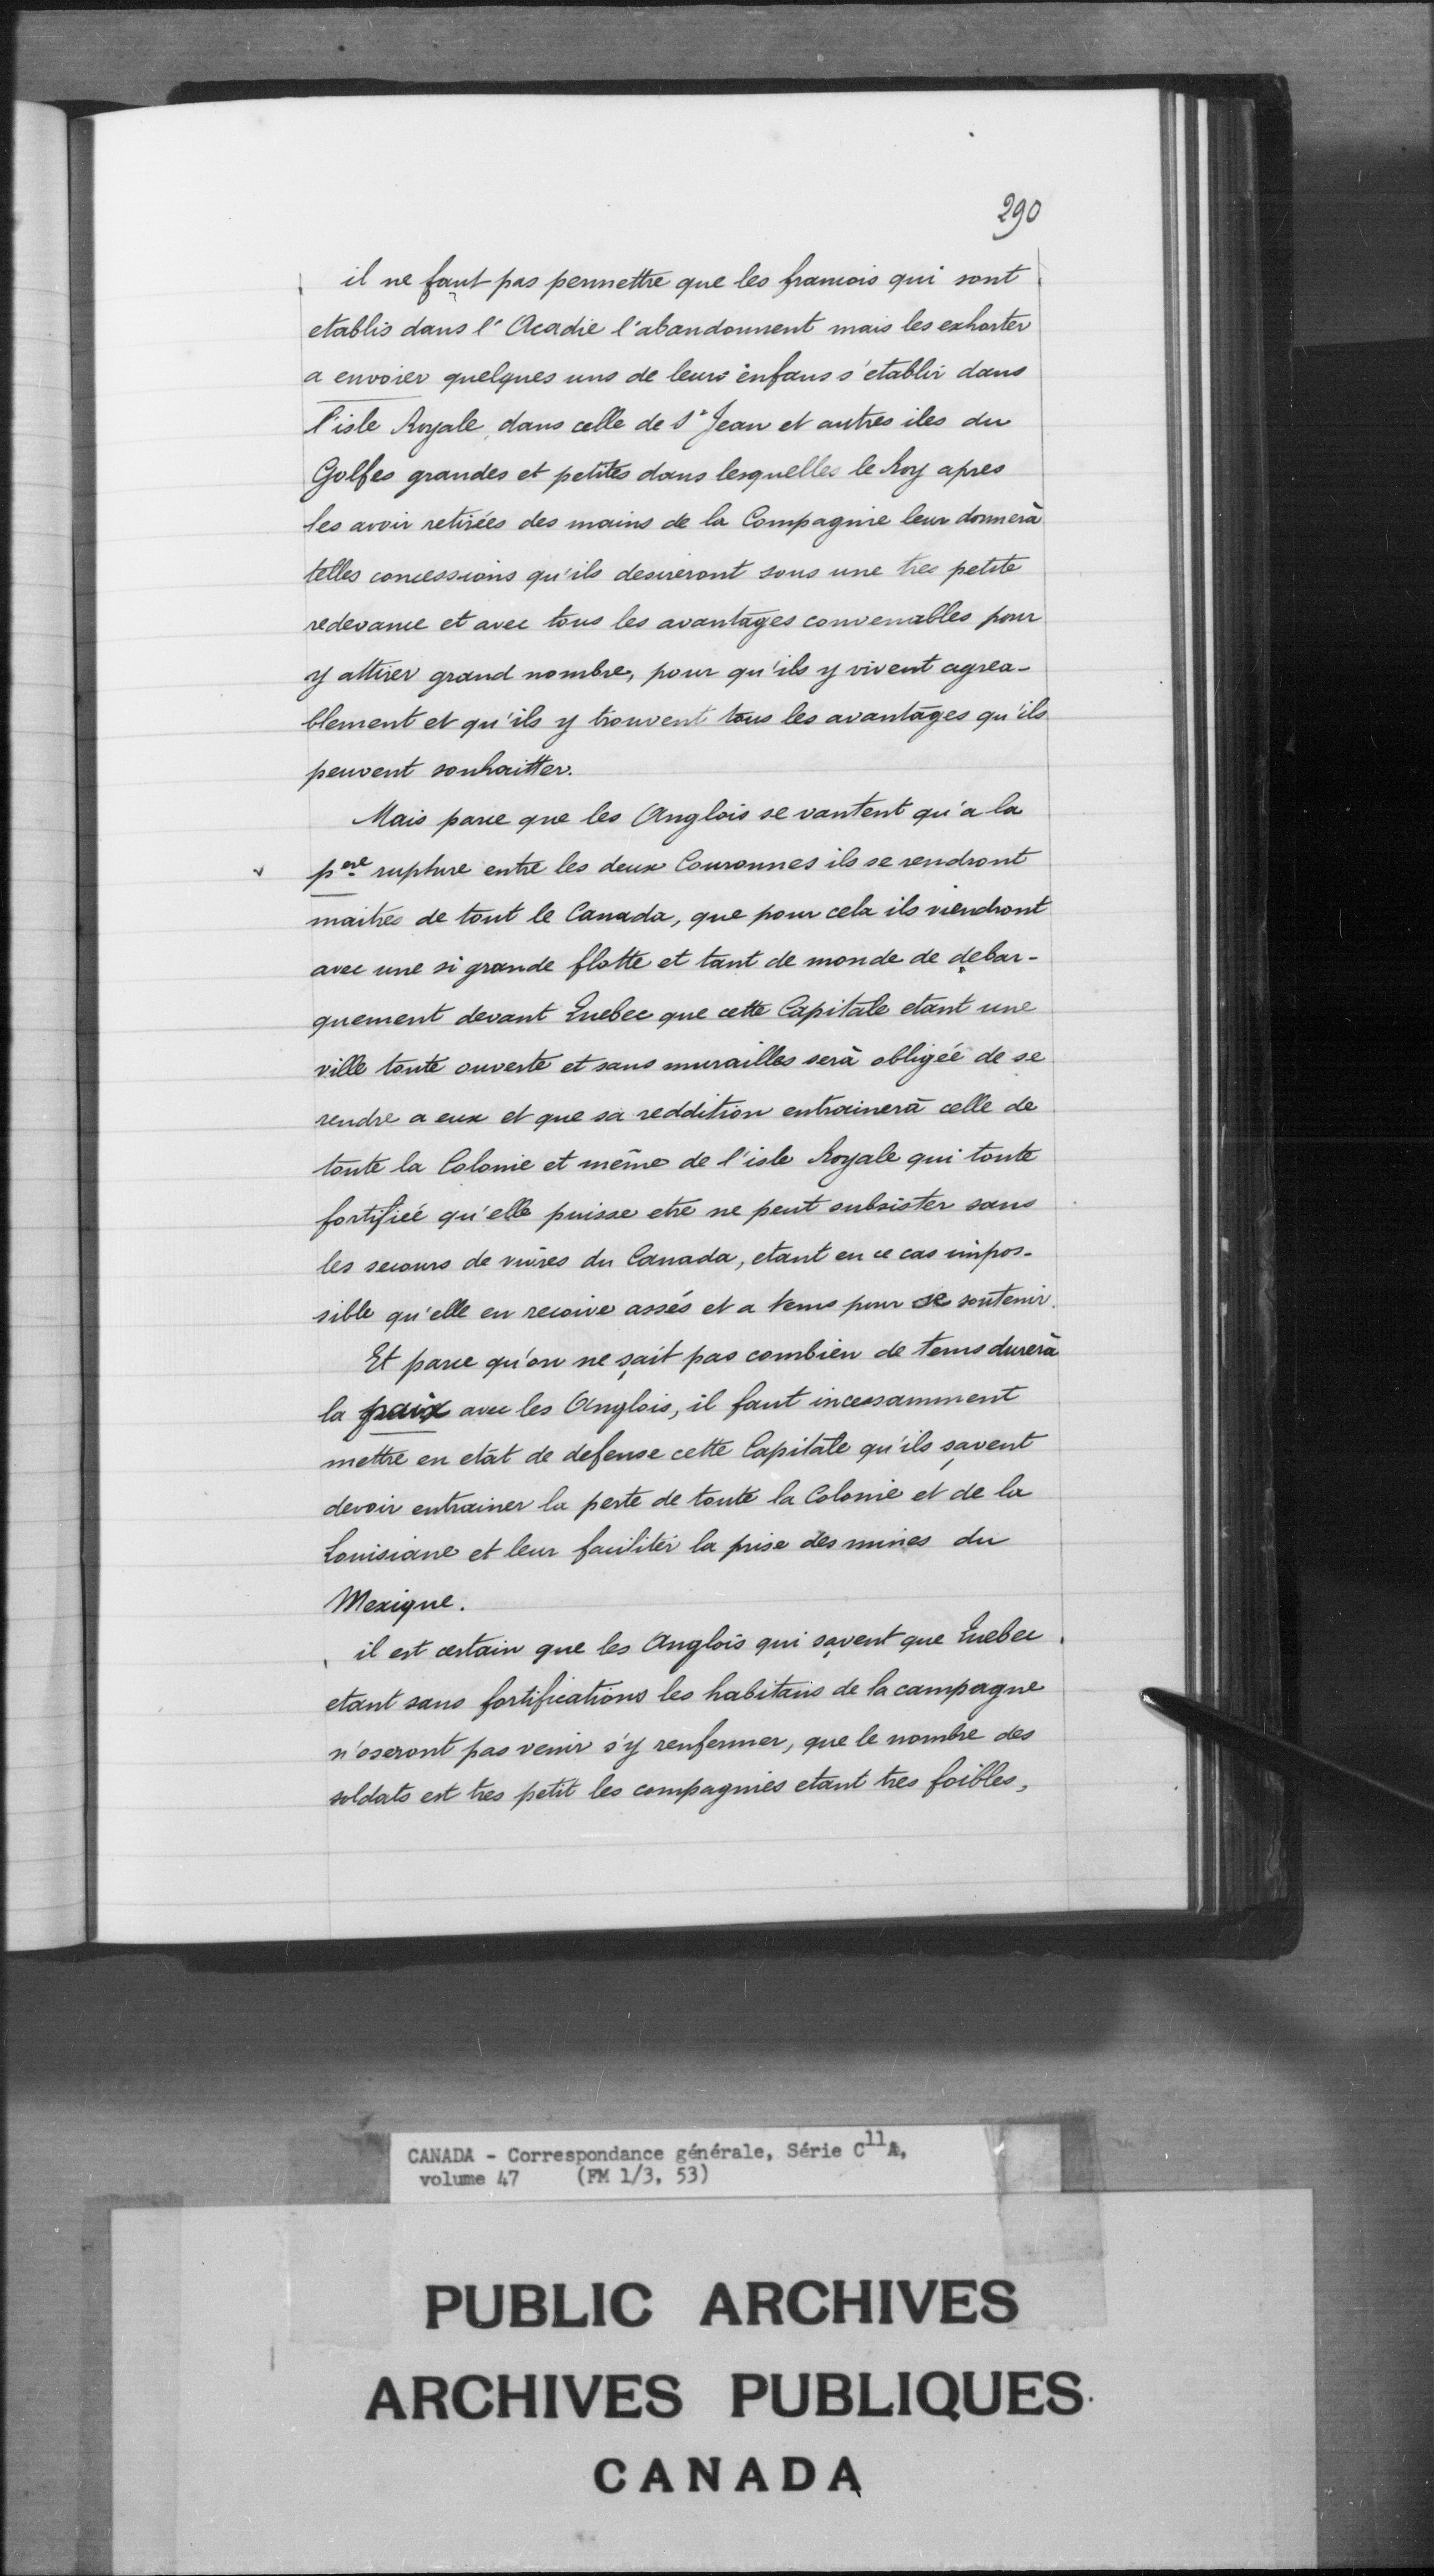 290
il ne faut pas permettre que les francois qui sont
etablis dans l'Acadie l'abandonnent mais les exhorter
a envoier quelques uns de leurs enfans s'etablir dans
l'isle Royale, dans celle de St Jean et autres iles du
Golfes grandes et petites dans lesquelles le Roy apres
les avoir retirées des mains de la Compagnie leur donnerà
telles concessions qu'ils desireront sous une tres petite
redevance et avec tous les avantages convenables pour
y attirer grand nombre, pour qu'ils y vivent agrea-
blement et qu'ils y trouvent tous les avantages qu'ils
peuvent souhaitter.
Mais parce que les Anglois se vantent qu'a la
pere rupture entre les deux Couronnes ils se rendront
maitres de tout le Canada, que pour cela ils viendront
avec une si grande flotte et tant de monde de debar-
quement devant Quebec que cette Capitale etant une
ville toute ouverte et sans murailles serà obligée de se
rendre a eux et que sa reddition entrainerà celle de
toute la Colonie et même de l'isle Royale qui toute
fortifiée qu'elle puisse etre ne peut subsister sans
les secours de vivres du Canada, etant en ce cas impos-
sible qu'elle en recoive assés et a tems pour se soutenir.
Et parce qu'on ne sçait pas combien de tems durerà
la paix avec les Anglois, il faut incessamment
mettre en etat de defense cette Capitale qu'ils sçavent
devoir entrainer la perte de toute la Colonie et de la
Louisiane et leur faciliter la prise des mines du
Mexique.
il est certain que les Anglois qui sçavent que Quebec
etant sans fortifications les habitans de la campagne
n'oseront pas venir s'y renfermer, que le nombre des
soldats est tres petit les compagnies etant tres foibles,
CANADA - Correspondance générale, Série C11A,
volume 47 (FM 1/3, 53)
PUBLIC ARCHIVES
ARCHIVES PUBLIQUES
CANADA